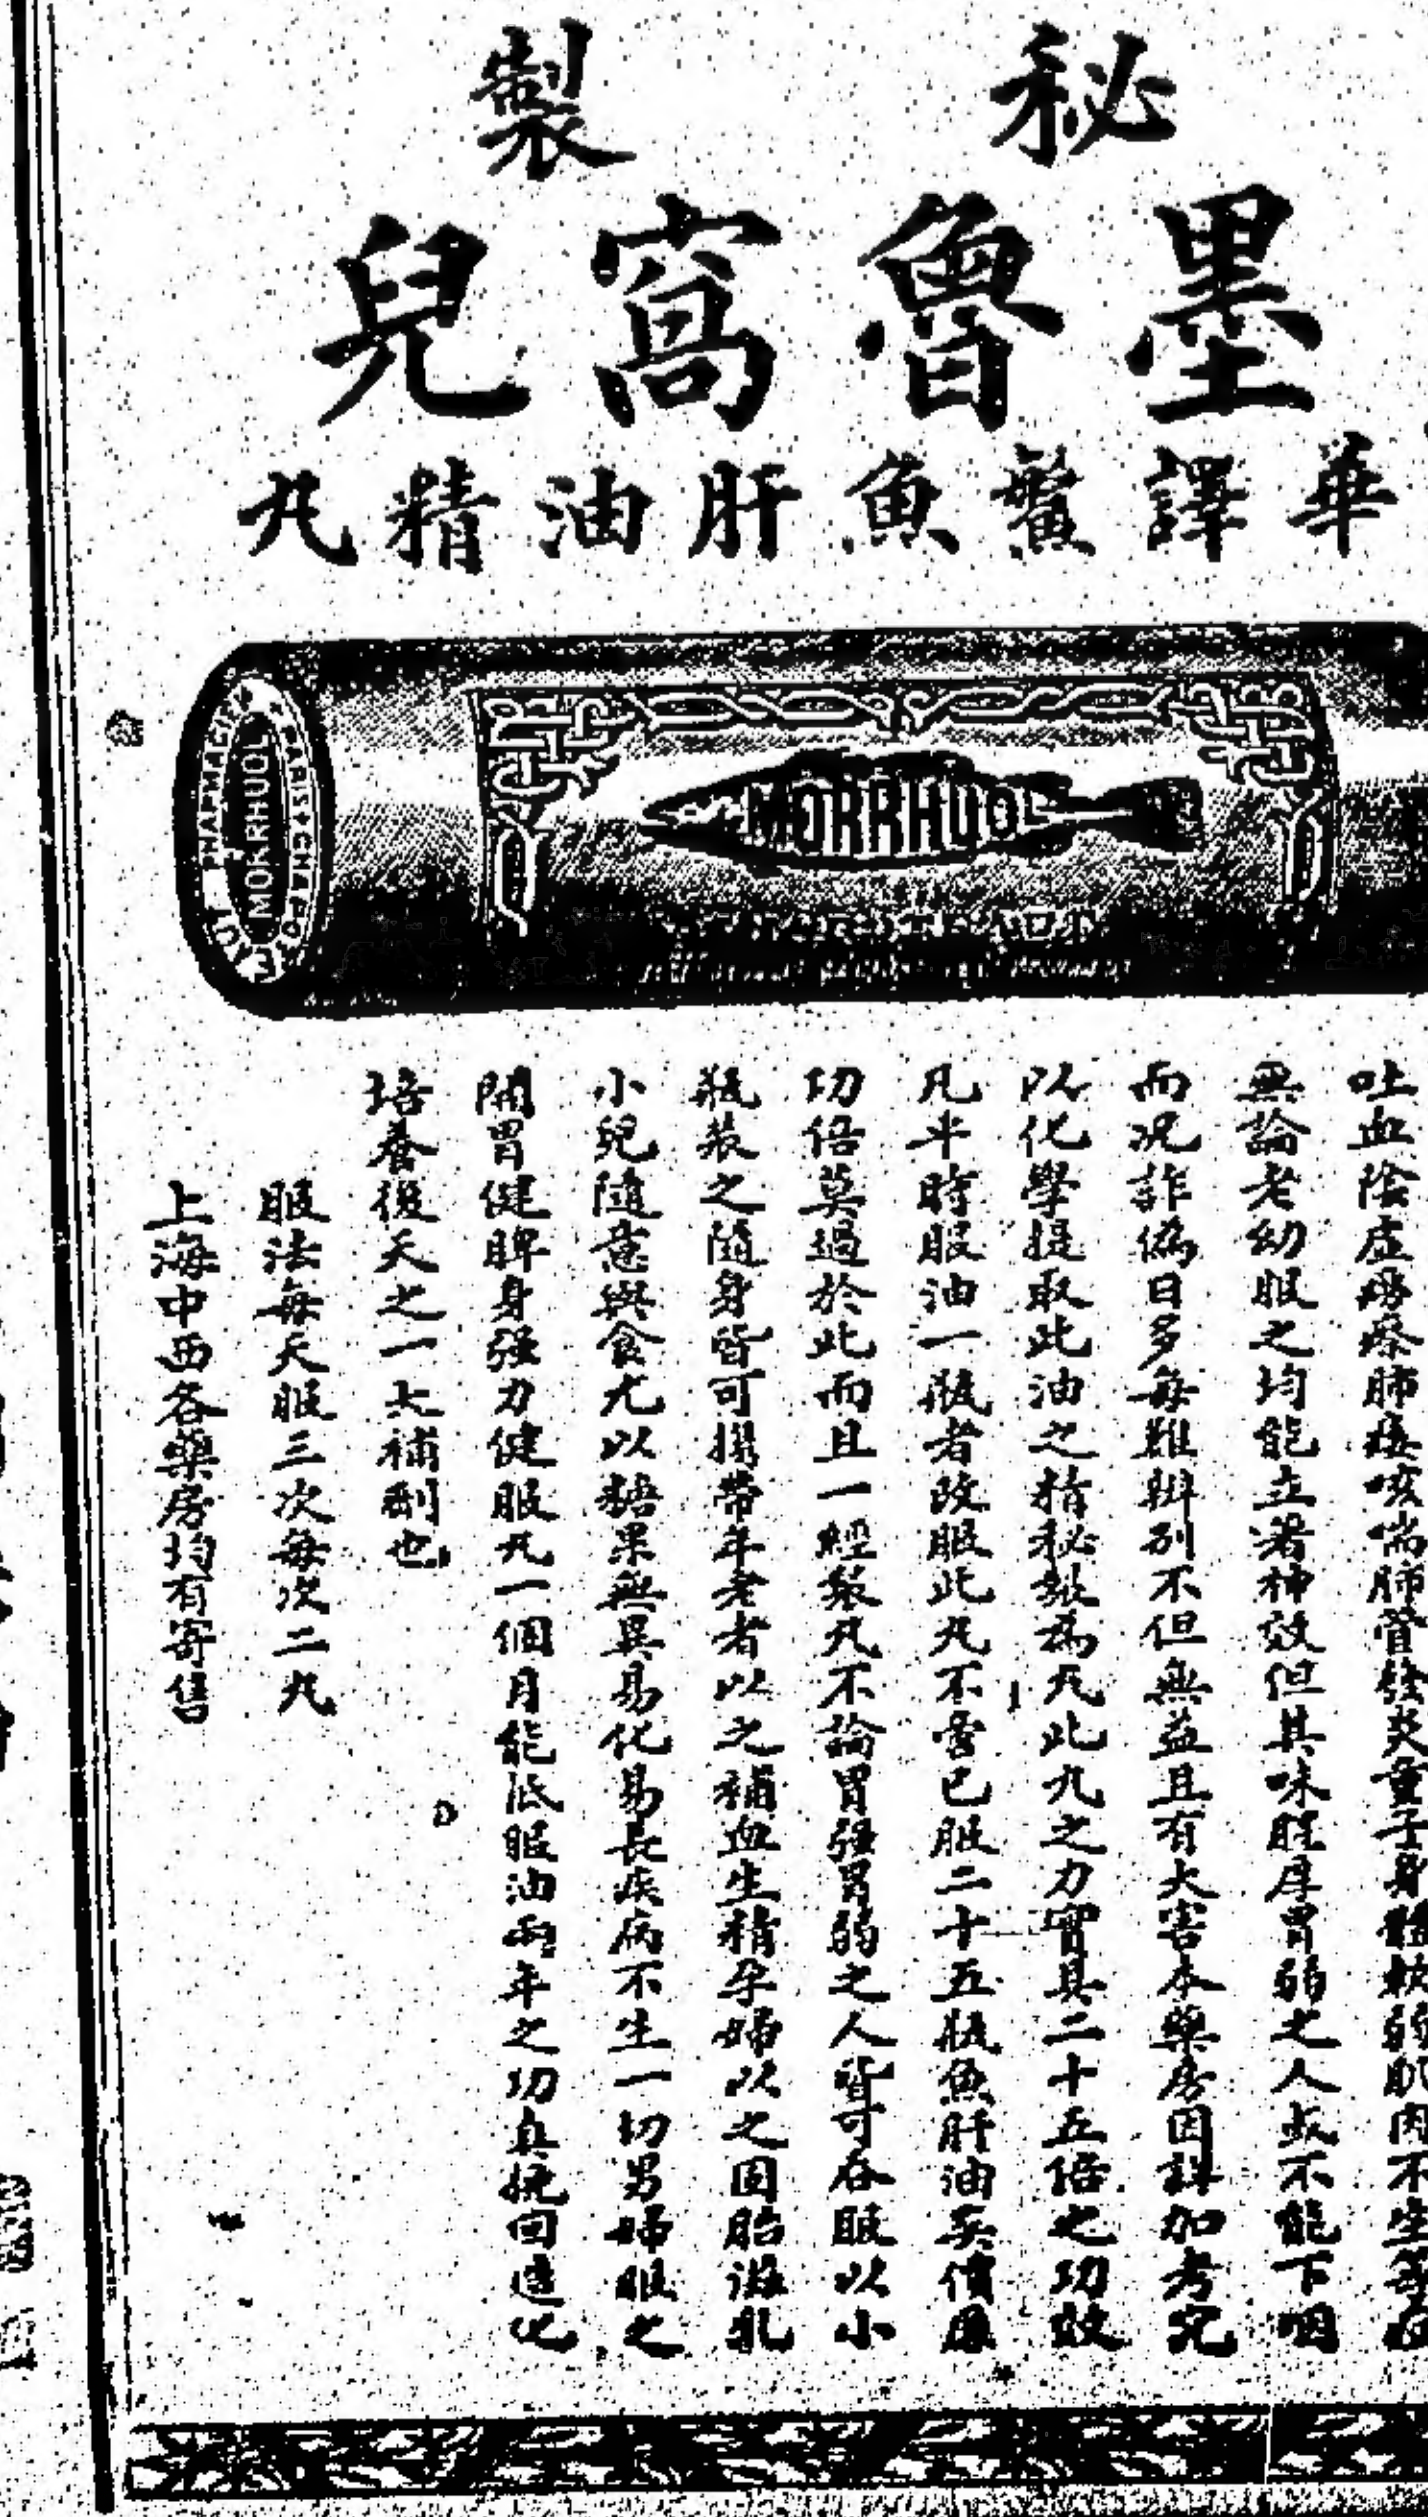 秘製
墨魯窩兒
華譯鰵魚肝油精丸
MORRHUOL
PHARMACIEN PARIS
MORRHUOL
吐血陰虛癆瘵肺痿咳喘肺管發炎童子身體軟弱肌肉不生每
無論老幼服之均能立著神效但其味腥厚胃弱之人或不能下咽
而況詐偽日多每難辨別不但無益且有大害本藥房因詳加考究
以化學提取此油之精秘製為丸此丸之力實具二十五倍之功效
凡平時服油一瓶者改服此丸不啻已服二十五瓶魚肝油矣價廉
功倍莫過於此而且一經製丸不論胃強胃弱之人皆可吞服以小
瓶裝之隨身皆可攜帶年老者以之補血生精孕婦以之固胎滋乳
小兒隨意與食尤以糖果無異易化易長疾病不生一切男婦服之
開胃健脾身强力健服丸一個月能抵服油兩年之功真挽回造化
培養後天之一大補劑也
服法每天服三次每次二丸
上海中西各藥房均有寄售